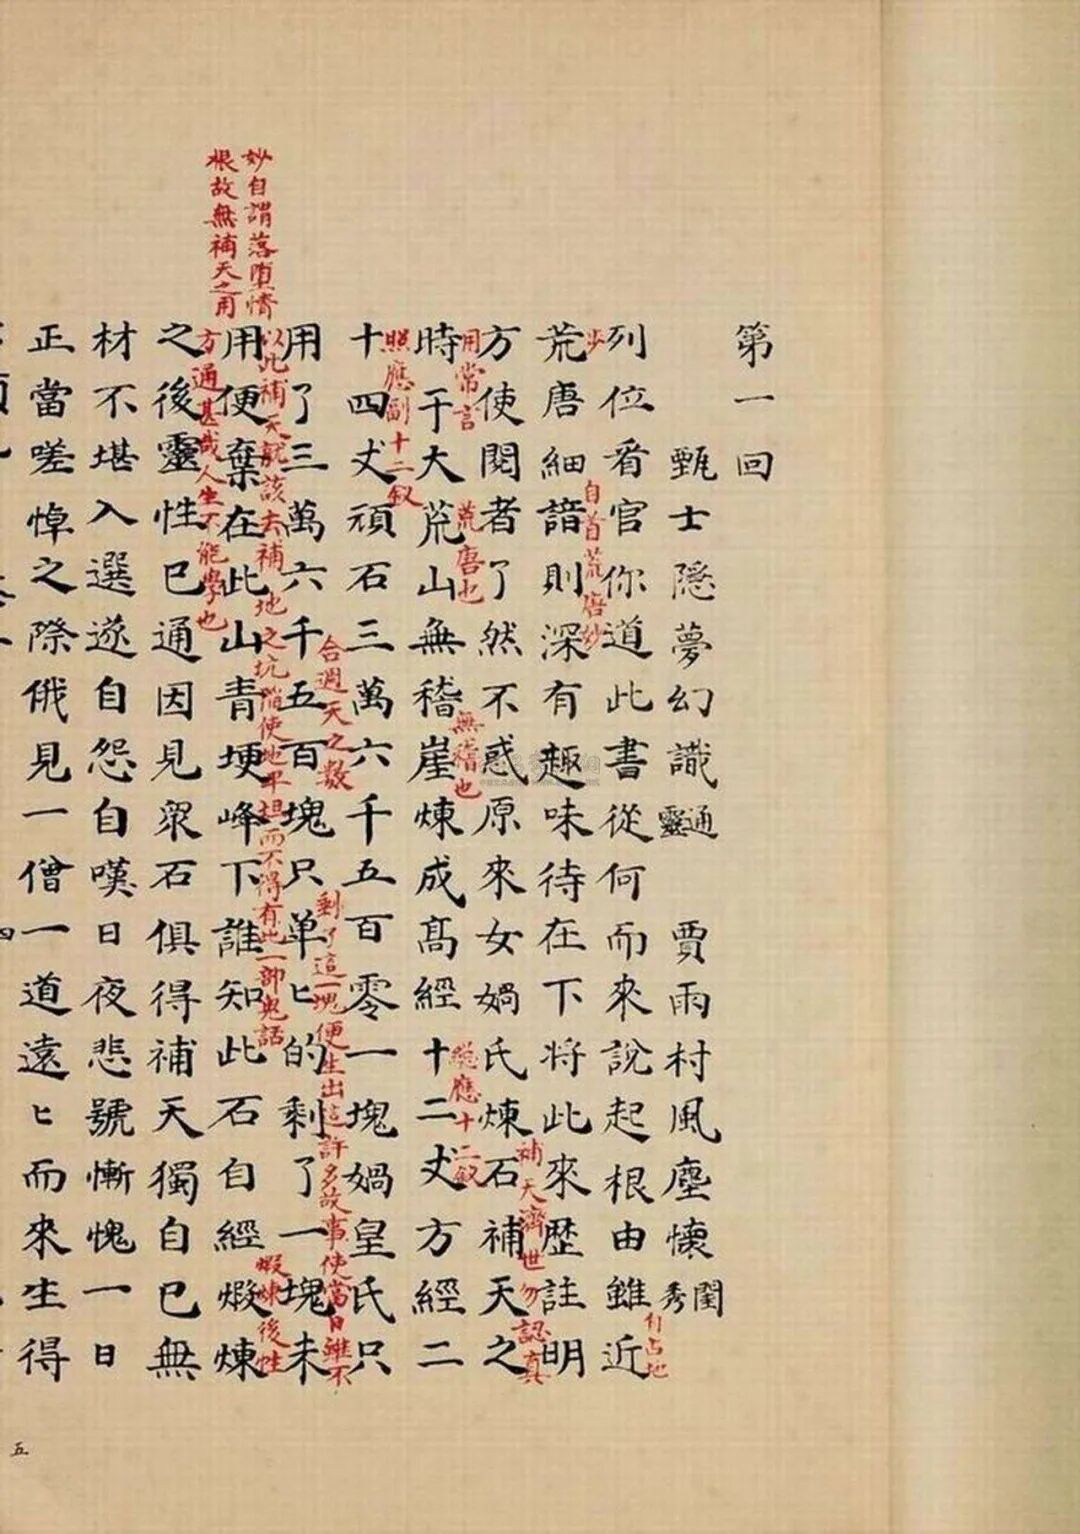 第一回
甄士隱夢幻識通靈　賈雨村風塵懷閨秀
列位看官你道此書從何而來說起根由雖近
自占地
步
自首荒唐妙
荒唐細諳則深有趣味待在下將此來歷註明
補天濟世勿認真
用常言
方使閱者了然不惑原來女媧氏煉石補天之
荒唐也
無稽也
總應十二釵
時于大荒山無稽崖煉成高經十二丈方經二
照應副十二釵
十四丈頑石三萬六千五百零一塊媧皇氏只
合週天之數
剩了這一塊便生出這許多故事使當日雖不
用了三萬六千五百塊只單匕的剩了一塊未
以此補天就該去補地之坑陷使地平坦而不得有此一部鬼話
妙自謂落堕情
根故無補天之用
用便棄在此山青埂峰下誰知此石自經煅煉
煅煉後性
方通甚哉人生不能學也
之後靈性已通因見衆石俱得補天獨自己無
材不堪入選遂自怨自嘆日夜悲號慚愧一日
正當嗟悼之際俄見一僧一道遠匕而來生得
四
五